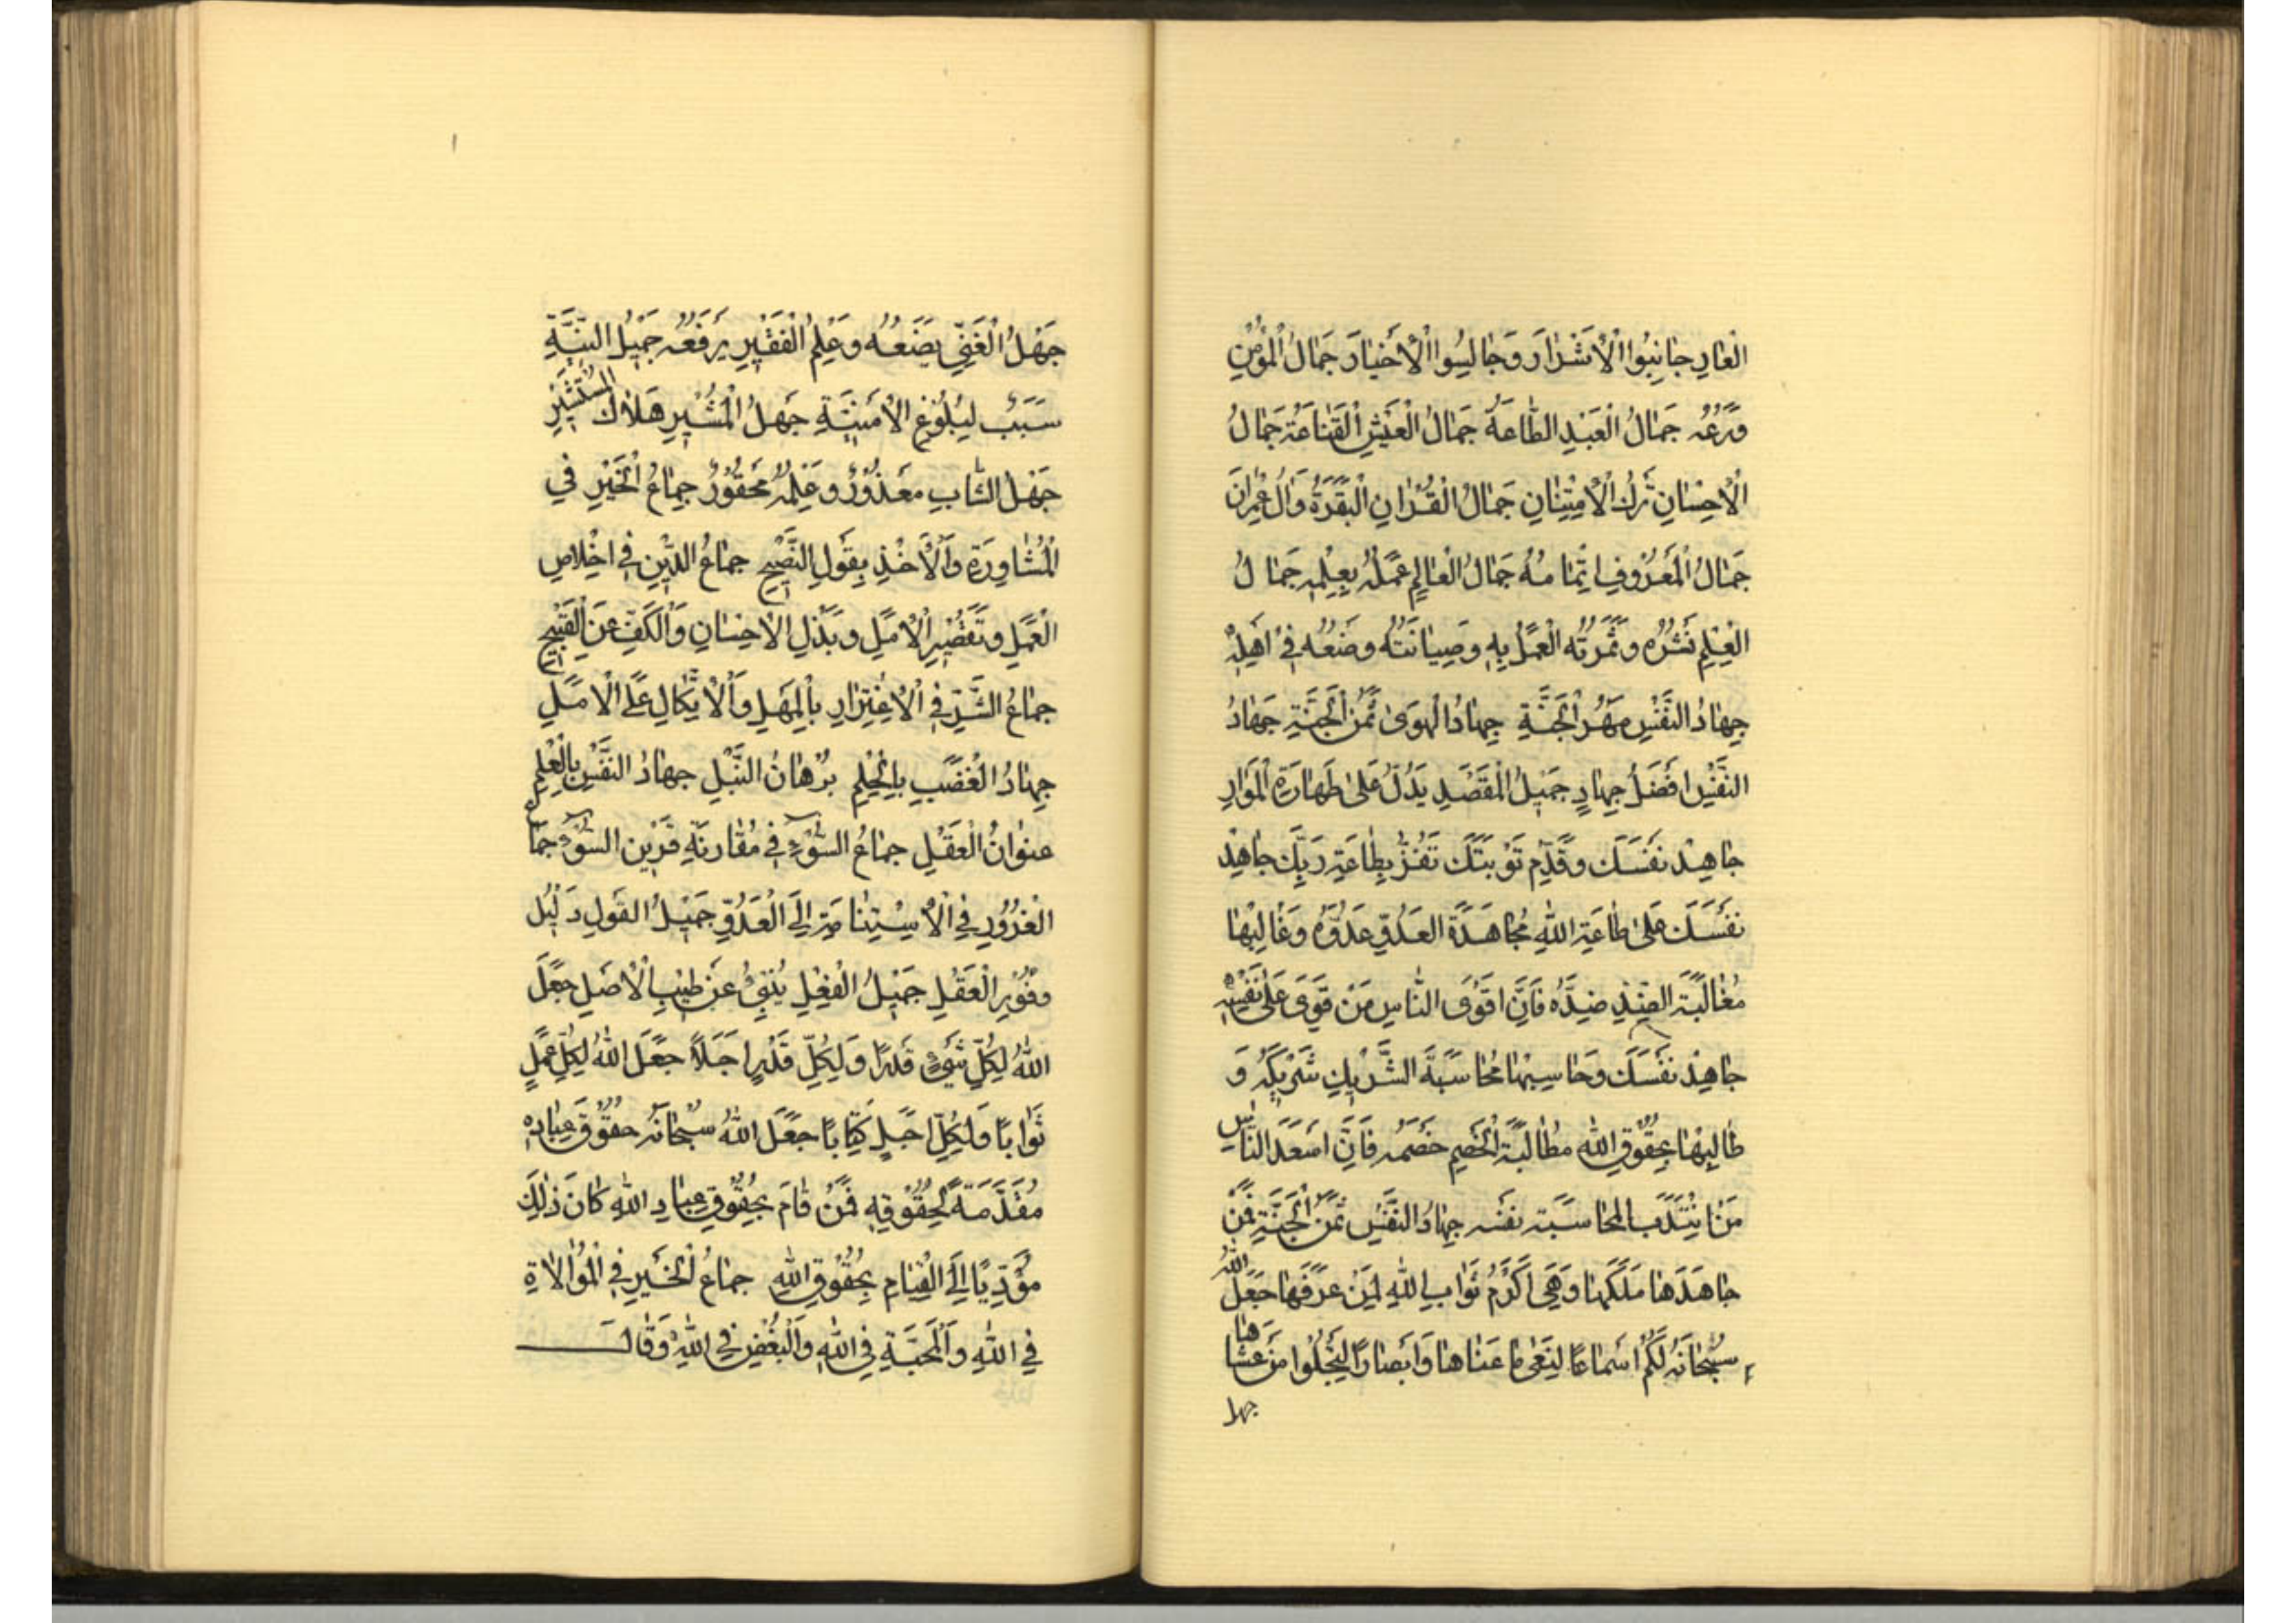 الْعَارِ جَانِبُوا الْأَشْرَارَ وَجَالِسُوا الْأَخْيَارَ جَمَالُ الْمُؤْمِنِ
وَرَعُهُ جَمَالُ الْعَبْدِ الطَّاعَةُ جَمَالُ الْعَيْشِ الْقَنَاعَةُ جَمَالُ
الْأِحْسَانِ تَرْكُ الْأِمْتِنَانِ جَمَالُ الْقُرْاٰنِ الْبَقَرَةُ وَاٰلُ عِمْرَانَ
جَمَالُ الْمَعْرُوفِ اِتْمَامُهُ جَمَالُ الْعَالِمِ عَمَلُهُ بِعِلْمِهِ جَمَالُ
الْعِلْمِ نَشْرُهُ وَثَمَرَتُهُ الْعَمَلُ بِهِ وَصِيَانَتُهُ وَضْعُهُ فِي اَهْلِهِ
جِهَادُ النَّفْسِ مَهْرُ الْجَنَّةِ جِهَادُ الْهَوَىٰ ثَمَنُ الْجَنَّةِ جِهَادُ
النَّفْسِ اَفْضَلُ جِهَادٍ جَمِيلُ الْمَقْصَدِ يَدُلُّ عَلَىٰ طَهَارَةِ الْمَوَارِدِ
جَاهِدْ نَفْسَكَ وَقَدِّمْ تَوْبَتَكَ تَفُزْ بِطَاعَةِ رَبِّكَ جَاهِدْ
نَفْسَكَ عَلَىٰ طَاعَةِ اللهِ مُجَاهَدَةَ الْعَدُوِّ عَدُوَّهُ وَغَالِبْهَا
مُغَالَبَةَ الضِّدِّ ضِدَّهُ فَاِنَّ اَقْوَى النَّاسِ مَنْ قَوِيَ عَلَىٰ نَفْسِهِ
جَاهِدْ نَفْسَكَ وَحَاسِبْهَا مُحَاسَبَةَ الشَّرِيكِ شَرِيكَهُ وَ
طَالِبْهَا بِحُقُوقِ اللهِ مُطَالَبَةَ الْخَصْمِ خَصْمَهُ فَاِنَّ اَسْعَدَ النَّاسِ
مَنِ انْتَدَبَ لِمُحَاسَبَةِ نَفْسِهِ جِهَادُ النَّفْسِ ثَمَنُ الْجَنَّةِ فَمَنْ
جَاهَدَهَا مَلَكَهَا وَهِيَ اَكْرَمُ ثَوَابِ اللهِ لِمَنْ عَرَفَهَا جَعَلَ اللهُ
سُبْحَانَهُ لَكُمْ اَسْمَاعًا لِتَعِيَ مَا عَنَاهَا وَاَبْصَارًا لِتَجْلُوا مَنْ عَشَاهَا
جهل
جَهْلُ الْغَنِيِّ يَضَعُهُ وَعِلْمُ الْفَقِيرِ يَرْفَعُهُ جَمِيلُ النِّيَّةِ
سَبَبٌ لِبُلُوغِ الْأُمْنِيَّةِ جَهْلُ الْمُشِيرِ هَلَاكُ الْمُسْتَشِيرِ
جَهْلُ الشَّابِّ مَعْذُورٌ وَعِلْمُهُ مَحْقُورٌ جِمَاعُ الْخَيْرِ فِي
الْمُشَاوَرَةِ وَالْأَخْذِ بِقَوْلِ النَّصِيحِ جِمَاعُ الدِّينِ فِي اِخْلَاصِ
الْعَمَلِ وَتَقْصِيرِ الْأَمَلِ وَبَذْلِ الْأِحْسَانِ وَالْكَفِّ عَنِ الْقَبِيحِ
جِمَاعُ الشَّرِّ فِي الْأِغْتِرَارِ بِالْمَهَلِ وَالْأِتِّكَالِ عَلَى الْأَمَلِ
جِهَادُ الْغَضَبِ بِالْحِلْمِ بُرْهَانُ النُّبْلِ جِهَادُ النَّفْسِ بِالْعِلْمِ
عِنْوَانُ الْعَقْلِ جِمَاعُ السُّوءِ فِي مُقَارَنَةِ قَرِينِ السُّوءِ جِمَاعُ
الْغُرُورِ فِي الْأِسْتِنَامَةِ اِلَى الْعَدُوِّ جَمِيلُ الْقَوْلِ دَلِيلُ
وُفُورِ الْعَقْلِ جَمِيلُ الْفِعْلِ يُنْبِئُ عَنْ طِيبِ الْأَصْلِ جَعَلَ
اللهُ لِكُلِّ شَيْءٍ قَدْرًا وَلِكُلِّ قَدْرٍ اَجَلًا جَعَلَ اللهُ لِكُلِّ عَمَلٍ
ثَوَابًا وَلِكُلِّ اَجَلٍ كِتَابًا جَعَلَ اللهُ سُبْحَانَهُ حُقُوقَ عِبَادِهِ
مُقَدَّمَةً لِحُقُوقِهِ فَمَنْ قَامَ بِحُقُوقِ عِبَادِ اللهِ كَانَ ذٰلِكَ
مُؤَدِّيًا اِلَى الْقِيَامِ بِحُقُوقِ اللهِ جِمَاعُ الْخَيْرِ فِي الْمُوَالَاةِ
فِي اللهِ وَالْمَحَبَّةِ فِي اللهِ وَالْبُغْضِ فِي اللهِ وَقَالَ